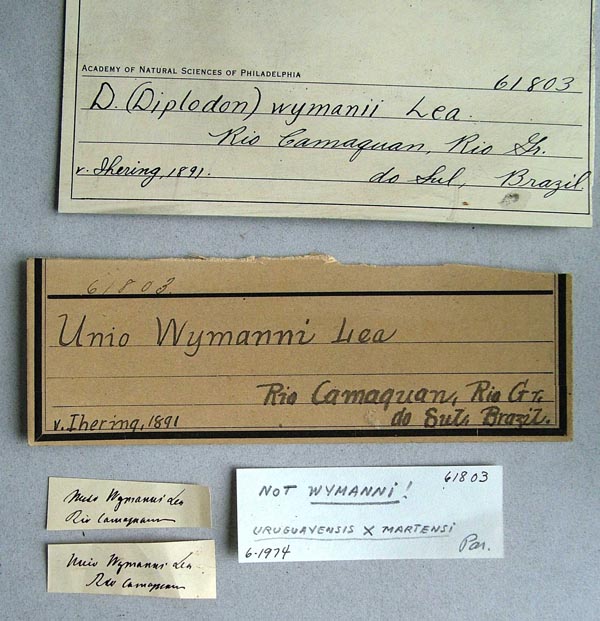 ACADEMY OF NATURAL SCIENCES OF PHILADELPHIA
61803
D. (Diplodon) wymanii Lea.
Rio Camaquan, Rio Gr.
v. Ihering, 1891. do Sul, Brazil.
61803.
Unio Wymanni Lea
Rio Camaquan, Rio Gr.
v. Ihering, 1891 do Sul, Brazil.
Unio Wymanni Lea
Rio Camaquam
61803
NOT WYMANNI!
URUGUAYENSIS X MARTENSI
6-1974 Par.
Unio Wymanni Lea
Rio Camaquam